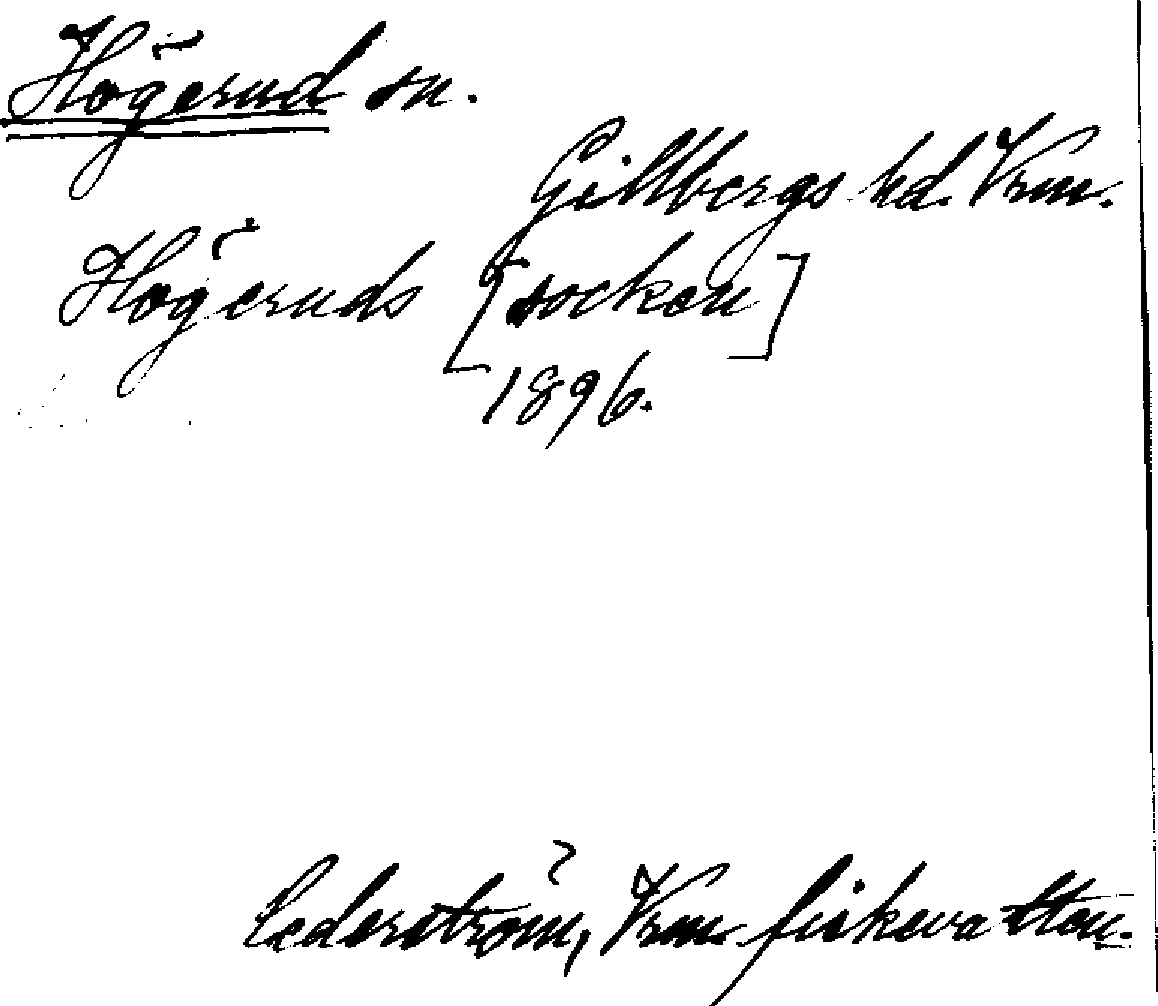 Högerud sn.
Gillbergs hd. Vrm.
Högeruds [socken]
1896.
Cederström, Vrm. fiskevatten.